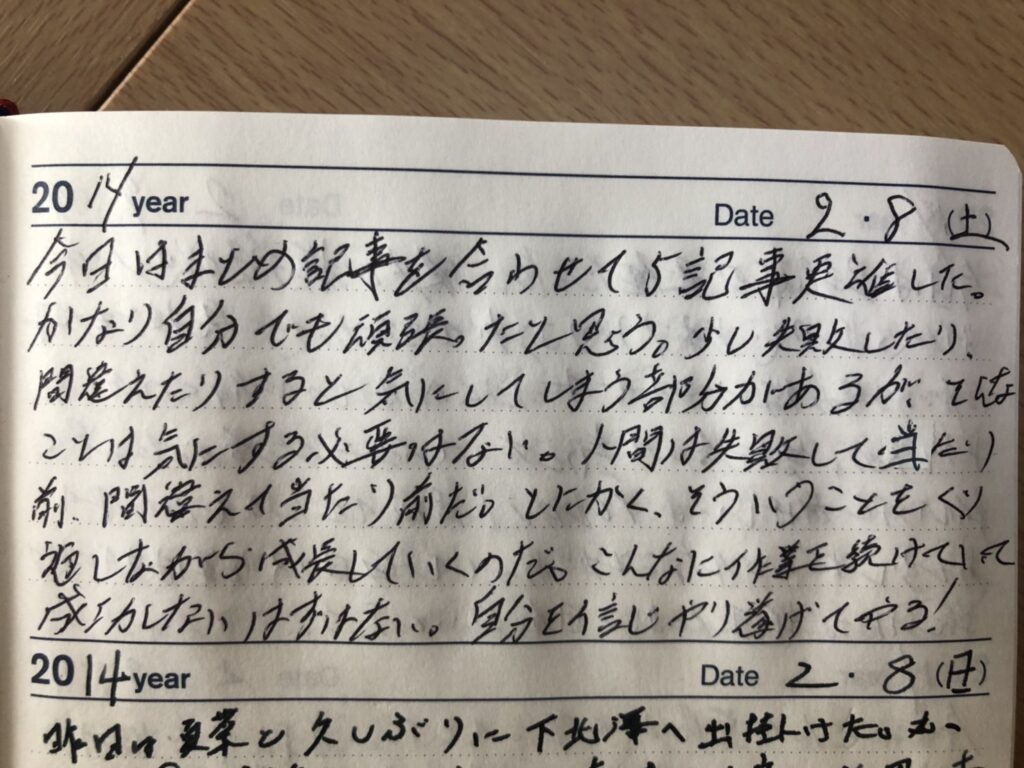 2014 year Date 2・8(土)
今日はまとめ記事を合わせて5記事更進した。
かなり自分でも頑張ったと思う。少し失敗したり、
間違えたりすると気にしてしまう部分があるが、そんな
ことは気にする必要はない。人間は失敗して当たり
前、間違えて当たり前だ。とにかく、そういうことをくり
返しながら成長していくのだ。こんなに作業を続けていて
成功しないはずはない。自分を信じやり遂げてやる!
2014 year Date 2・8(日)
昨日は夏菜と久しぶりに下北澤へ出掛けた。